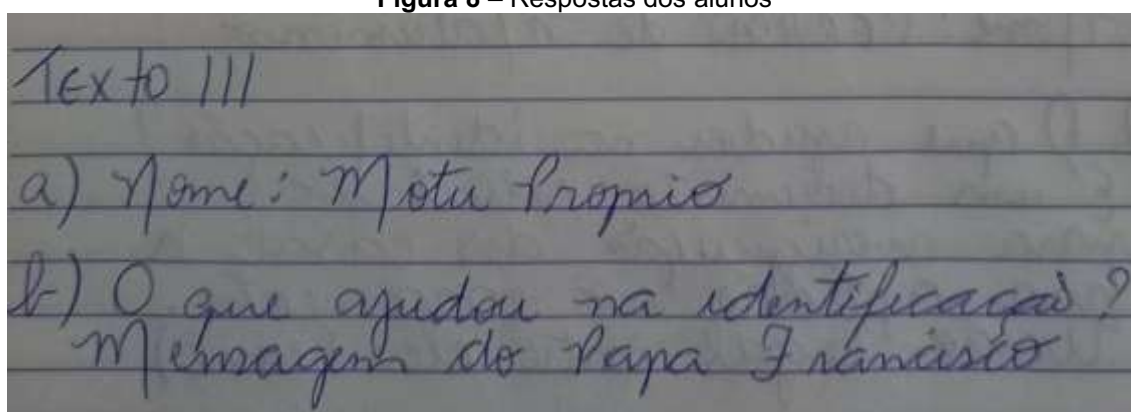 Figura 8 – Respostas dos alunos
Texto III
a) Nome: Motu Proprio
b) O que ajudou na identificação?
Mensagem do Papa Francisco